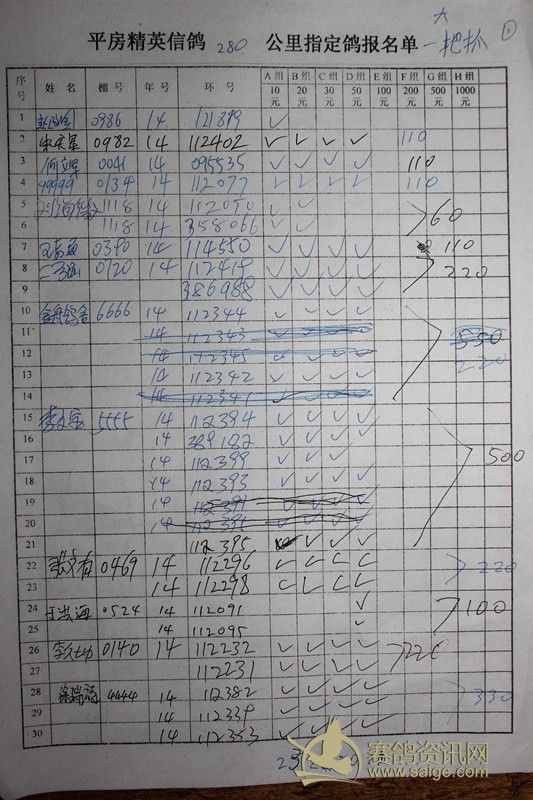 大
平房精英信鸽 280 公里指定鸽报名单 一把抓 ①
序号 姓名 棚号 年号 环号 A组10元 B组20元 C组30元 D组50元 E组100元 F组200元 G组500元 H组1000元
1 0986 14 121899 ✓
2 0982 14 112402 ✓ ✓ ✓ ✓ 110
3 0041 14 095535 ✓ ✓ ✓ ✓ 110
4 99999 0134 14 112077 ✓ ✓ ✓ ✓ 110
5 1118 14 112090 ✓ ✓
6 1118 14 358066 ✓ ✓ 60
7 0340 14 114580 ✓ ✓ ✓ ✓ 110
8 0720 14 112419 ✓ ✓ ✓ ✓ 220
9 386988 ✓ ✓ ✓ ✓
10 6666 14 112344 ✓ ✓ ✓ ✓
11 14 112343 ✓ ✓ ✓ ✓ 550
12 14 112345 ✓ ✓ ✓ ✓ 220
13 14 112342 ✓ ✓ ✓ ✓
14 14 112341 ✓ ✓ ✓ ✓
15 5555 14 112394 ✓ ✓ ✓ ✓
16 14 389182 ✓ ✓ ✓ ✓
17 14 112399 ✓ ✓ ✓ ✓ 500
18 14 112393 ✓ ✓ ✓ ✓
19 14 112391 ✓ ✓ ✓ ✓
20 14 ✓ ✓ ✓ ✓
21 112395 ✓ ✓ ✓
22 张文有 0469 14 112296 ✓ ✓ ✓ ✓ 220
23 14 112298 ✓ ✓ ✓ ✓
24 于洪海 0524 14 112091 ✓ 100
25 14 112095 ✓
26 0140 14 112232 ✓ ✓ ✓ ✓ 220
27 112231 ✓ ✓ ✓ ✓
28 徐瑞福 4444 14 112382 ✓ ✓ ✓ ✓ 330
29 14 112339 ✓ ✓ ✓ ✓
30 14 112353 ✓ ✓ ✓ ✓
赛鸽资讯网
www.saige.com